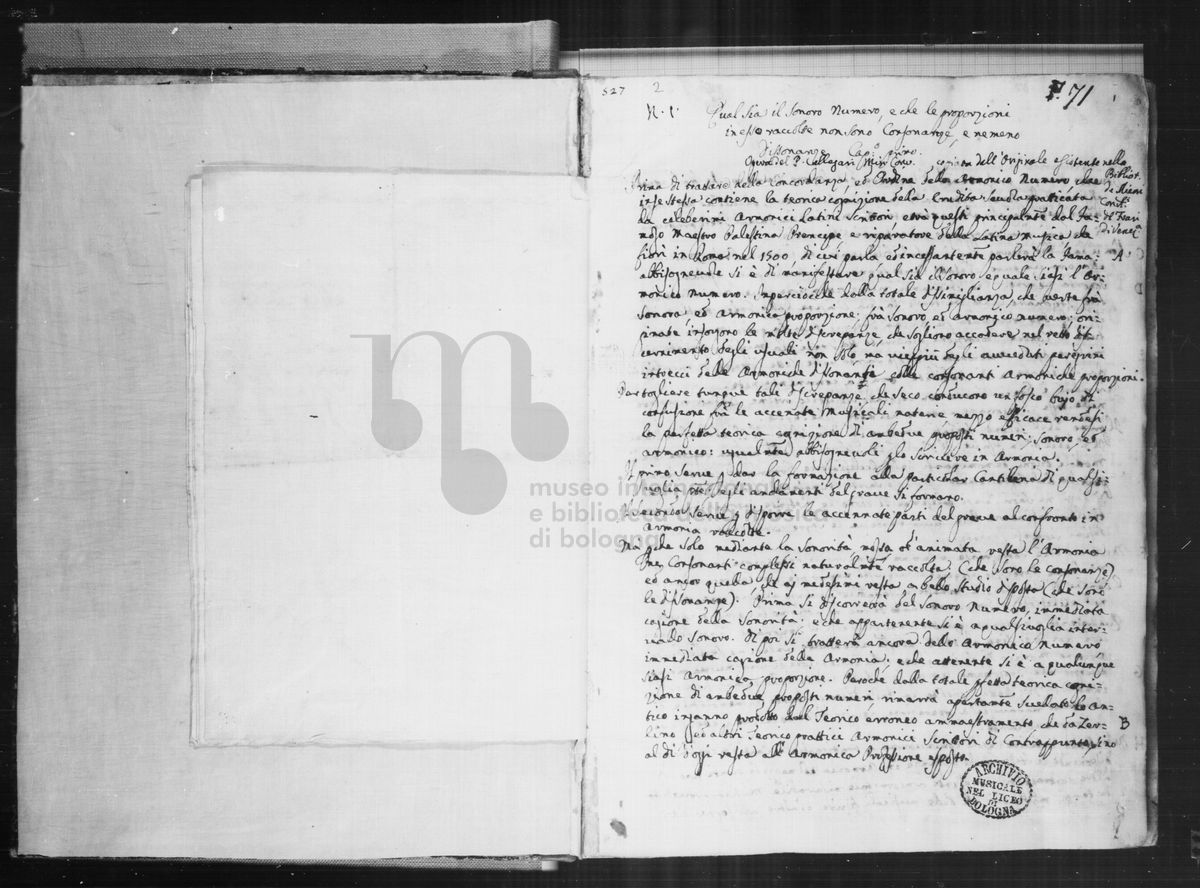 527 2
F. 71
N. 1. Qual sia il Sonoro Numero, e che le proporzioni
in esso raccolte non sono Consonanze, e nemeno
Dissonanze. Cap.o primo.
Opera del P. Callegari Min: Conv. copiata dell'Originale esistente nella
Bibliot.
de Minori
Con.ti
di Venez.
Prima di trattare della Concordanza, ed Ordine dello Armonico Numero, che
in se stessa contiene la teorica cognizione della Erudita Scuola pratticata
da celeberimi Armonici Latini Scrittori, e trà questi principalmte dal Fa-
moso Maestro Palestina Prencipe e riparatore della Latina Musica che
fiorì in Roma nel 1500, di cui parla ed incessantemte parlerà la fama: A
abbisognevole si è di manifestare qual sia il Sonoro e quale siasi l'Ar-
monico Numero. Imperciocche dalla totale dissimiglianza, che verte frà
Sonora, ed Armonica proporzione; frà Sonoro, ed Armonico numero; ori-
ginate insorgono le molte discrepanze, che sogliono accadere nel retto di-
cernimento degli usuali non solo, ma viepiù degli avveduti peregrini
intrecci delle Armoniche dissonanze colle consonanti Armoniche proporzioni.
Par togliere dunque tali discrepanze, che seco conducono un fosco bujo di
confusione frà le accenate Musicali materie mezzo efficace rendesi
la perfetta teorica cognizione di ambedue proposti numeri: Sonoro, ed
Armonico: ugualmte abbisognevoli p lo scrivere in Armonia.
Il primo serve p dar la formazione alla particolar Cantilena di qualsi-
voglia pte degli andamenti del grave si formano.
Il secondo serve p disporre le accennate parti del grave al confronto in
Armonia raccolte.
Ma p che solo mediante la Sonorità mossa ed animata resta l'Armonia
ne Consonanti complessi naturalmte raccolta (che sono le consonanze)
ed ancor quella, che aj medesimi resta a bello studio disposta (che sono
le dissonanze): Prima si discorrerà del Sonoro Numero, immediata
cagione della Sonorità; e che appartenente si è a qualsivoglia inter-
vallo Sonoro. Di poi si tratterà ancora dello Armonico Numero
immediata cagione della Armonia; e che attenente si è a qualunque
siasi Armonica proporzione. Peroche dalla totale pfetta teorica cogni-
zione di ambedue proposti numeri rimarrà apertamte svellato lo an-
tico inganno prodotto dal Teorico erroneo ammaestramento che da Zer- B
lino ed altri Teorico prattici Armonici Scrittori di Contrappunto, sino
al dì d'oggi resta all'Armonica Professione esposto.
ARCHIVIO
MUSICALE
NEL LICEO
DI
BOLOGNA
museo internazionale
e biblioteca della musica
di bologna